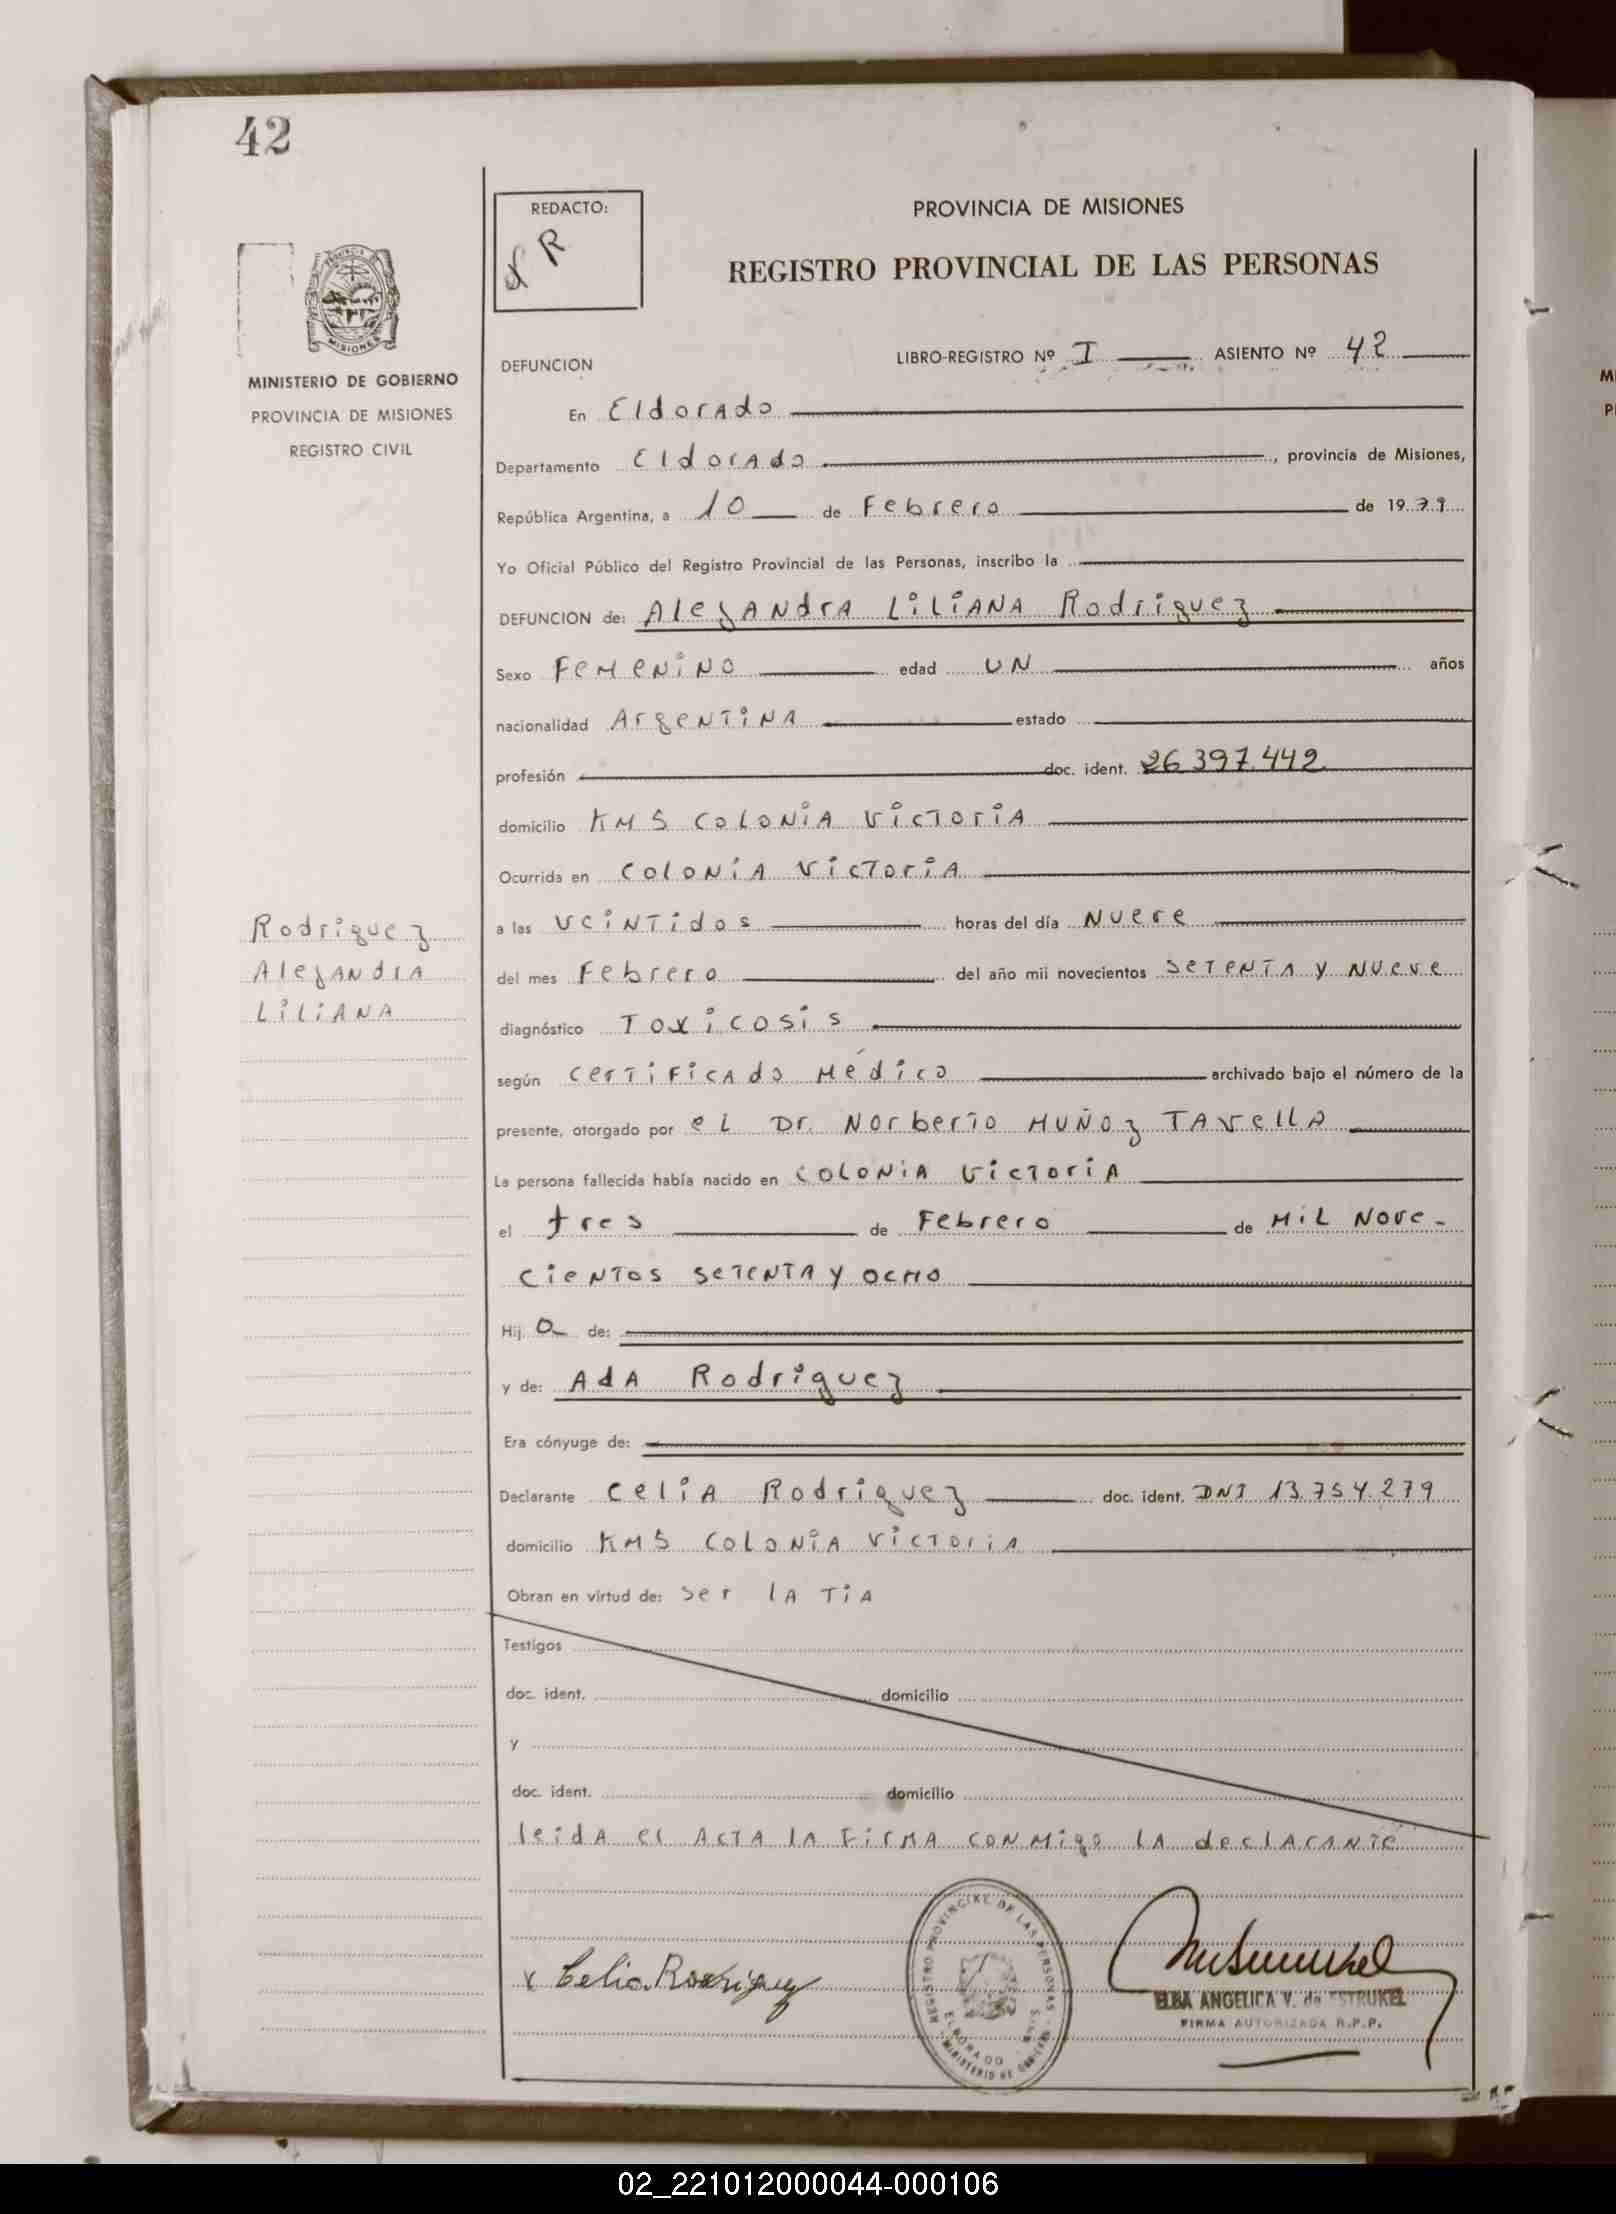 42
REDACTO:
PROVINCIA DE MISIONES
REGISTRO PROVINCIAL DE LAS PERSONAS
MISIONES
MINISTERIO DE GOBIERNO
PROVINCIA DE MISIONES
REGISTRO CIVIL
DEFUNCION LIBRO-REGISTRO Nº I ASIENTO Nº 42
En Eldorado
Departamento Eldorado, provincia de Misiones,
República Argentina, a 10 de Febrero de 1979
Yo Oficial Público del Registro Provincial de las Personas, inscribo la
DEFUNCION de: Alejandra Liliana Rodriguez
Sexo Femenino edad un años
nacionalidad Argentina estado
profesión doc. ident. 26 397.442
domicilio KM5 Colonia Victoria
Ocurrida en Colonia Victoria
a las veintidos horas del día Nueve
del mes Febrero del año mil novecientos setenta y nueve
Rodriguez
Alejandra
Liliana
diagnóstico Toxicosis
según certificado Médico archivado bajo el número de la
presente, otorgado por el Dr. Norberto Muñoz Tavella
La persona fallecida había nacido en Colonia Victoria
el tres de Febrero de mil nove-
cientos setenta y ocho
Hij a de:
y de: Ada Rodriguez
Era cónyuge de:
Declarante Celia Rodriguez doc. ident. DNI 13.754.279
domicilio KM5 Colonia Victoria
Obran en virtud de: ser la tia
Testigos
doc. ident. domicilio
y
doc. ident. domicilio
leida el acta la firma conmigo la declarante
x Celia Rodriguez
REGISTRO PROVINCIAL DE LAS PERSONAS
ELDORADO
MINISTERIO DE GOBIERNO
ELBA ANGELICA V. de ESTRUKEL
FIRMA AUTORIZADA R.P.P.
02_221012000044-000106